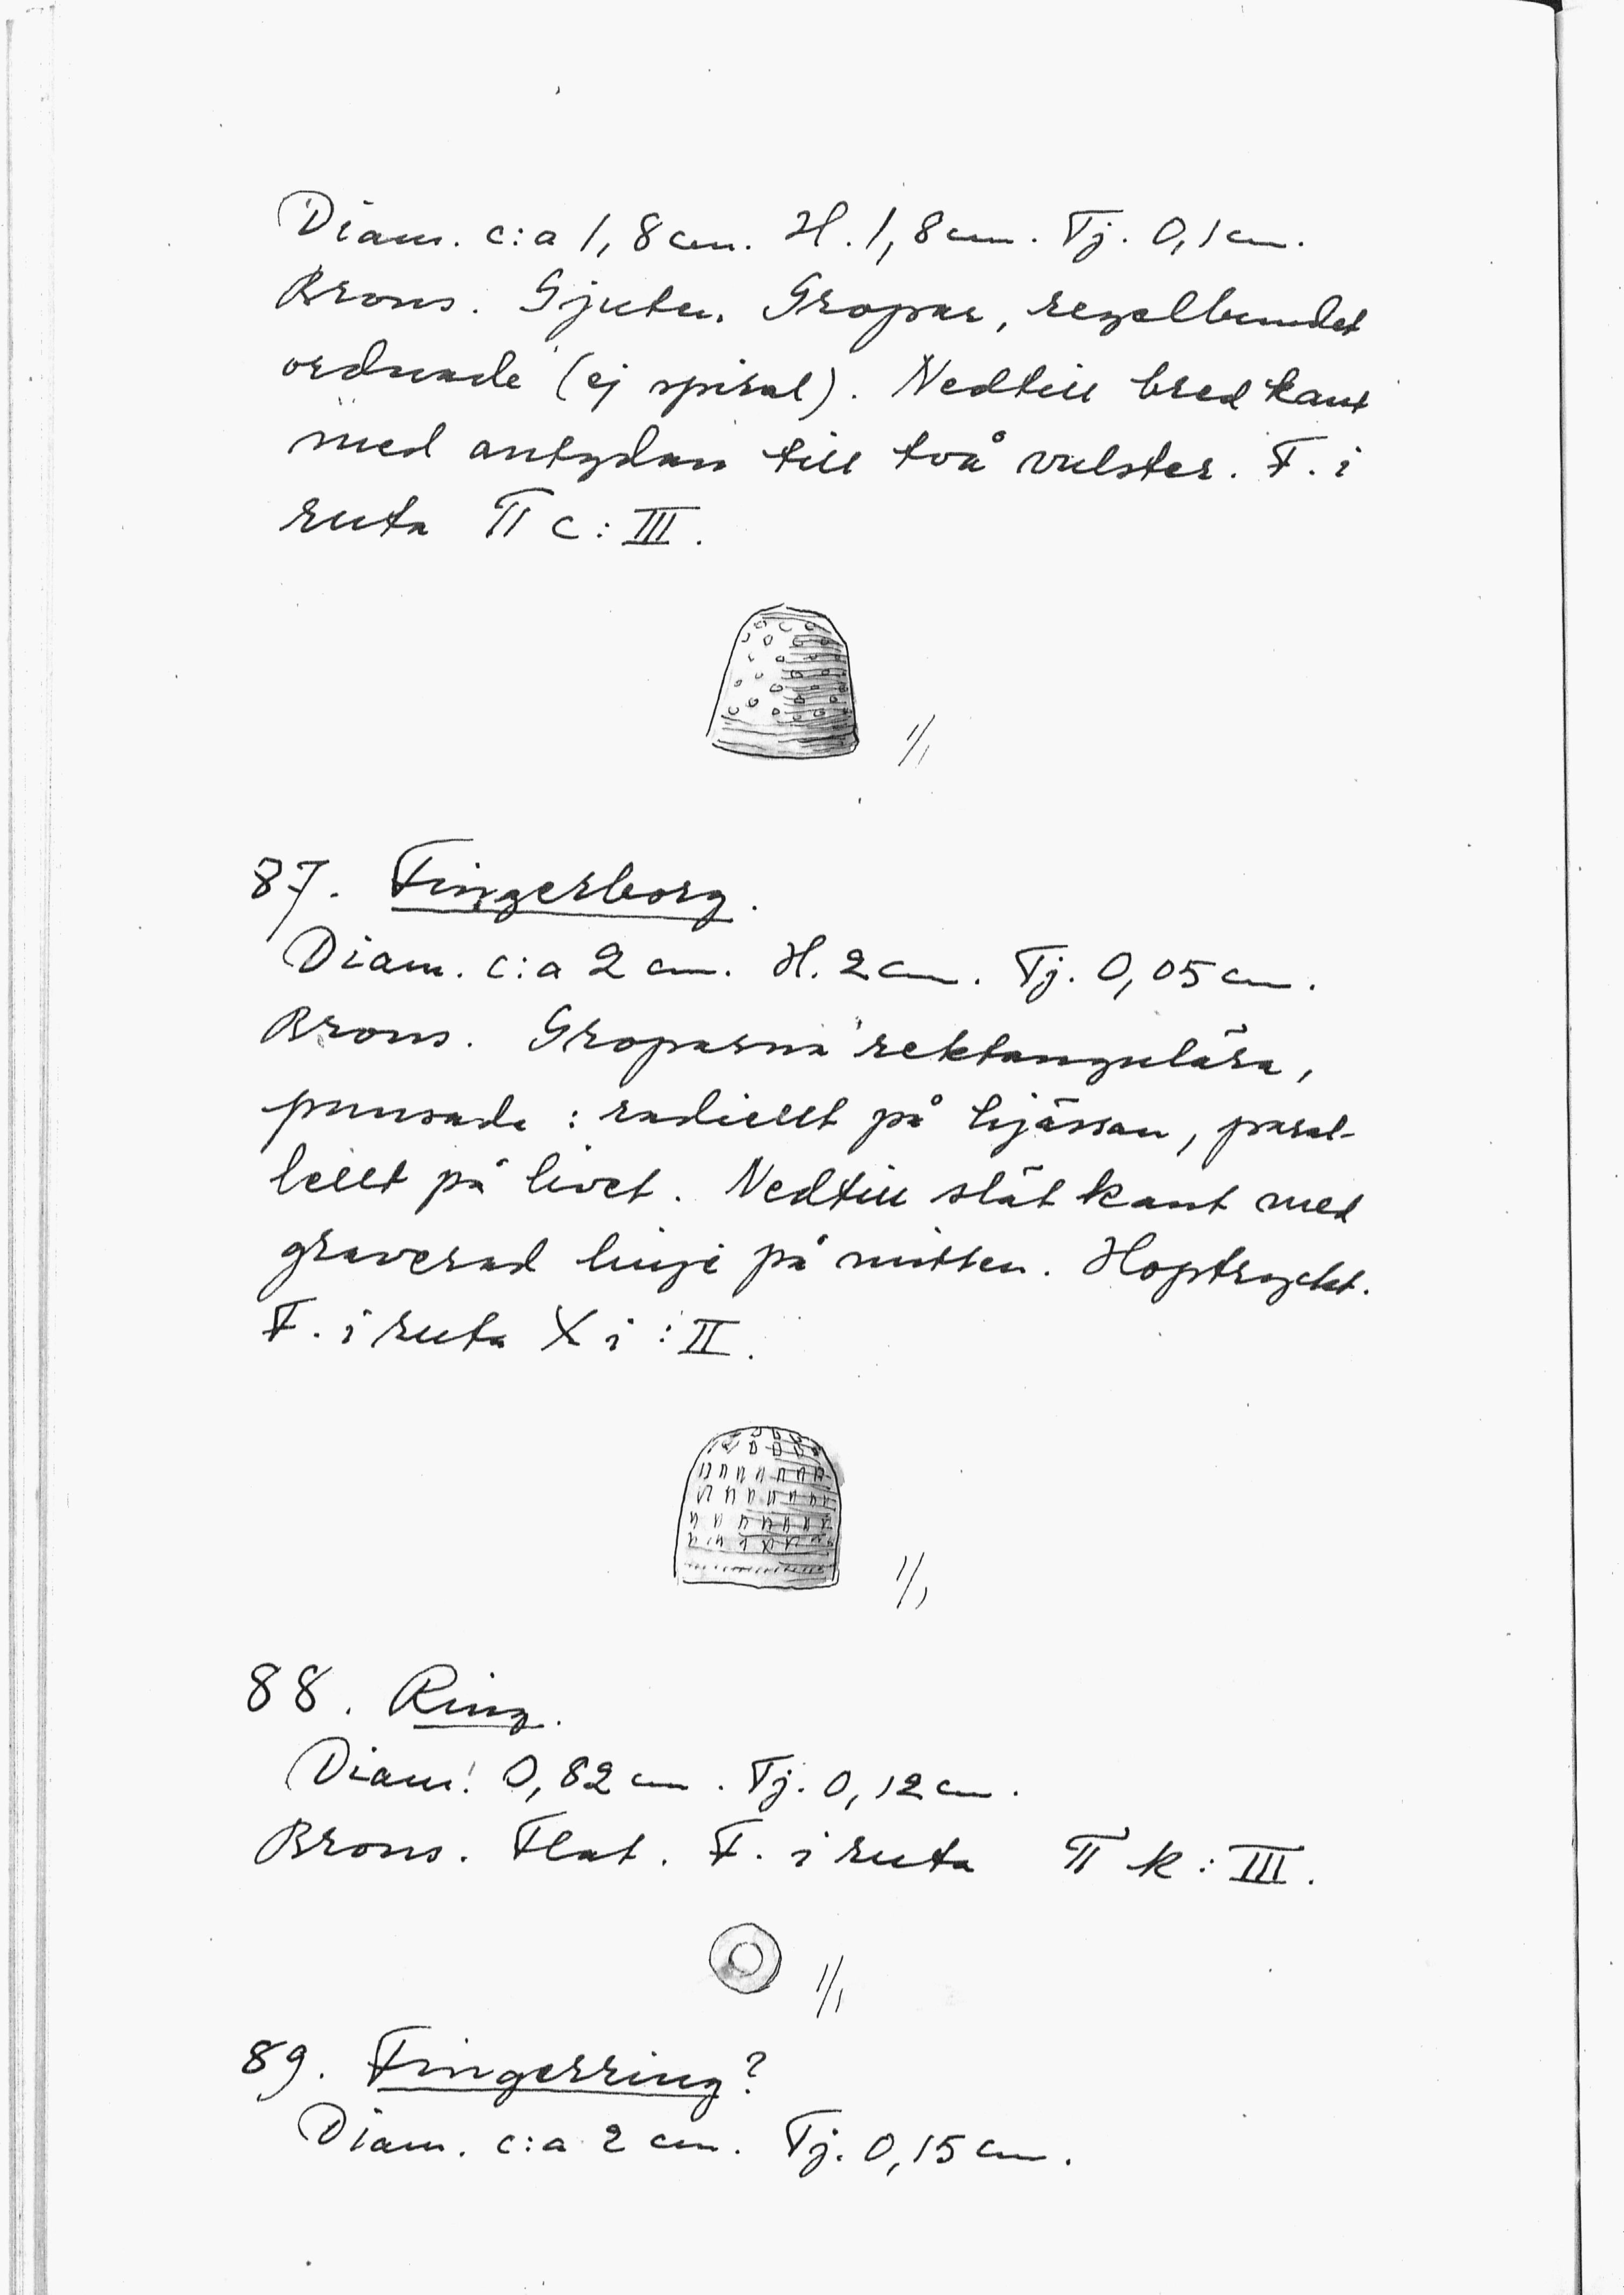 Diam. c:a 1,8 cm. H. 1,8 cm. Tj. 0,1 cm.
Brons. Gjuten. Gropar, regelbundet
ordnade (ej spiral). Nedtill bred kant
med antydan till två vulster. F. i
ruta II c: III.
1/1
87. Fingerborg.
Diam. c:a 2 cm. H. 2 cm. Tj. 0,05 cm.
Brons. Groparna rektangulära,
punsade: radiellt på hjässan, paral-
lellt på livet. Nedtill slät kant med
graverad linje på mitten. Hoptryckt.
F. i ruta X i: II.
1/1
88. Ring.
Diam. 0,82 cm. Tj. 0,12 cm.
Brons. Flat. F. i ruta II k: III.
1/1
89. Fingerring?
Diam. c:a 2 cm. Tj. 0,15 cm.